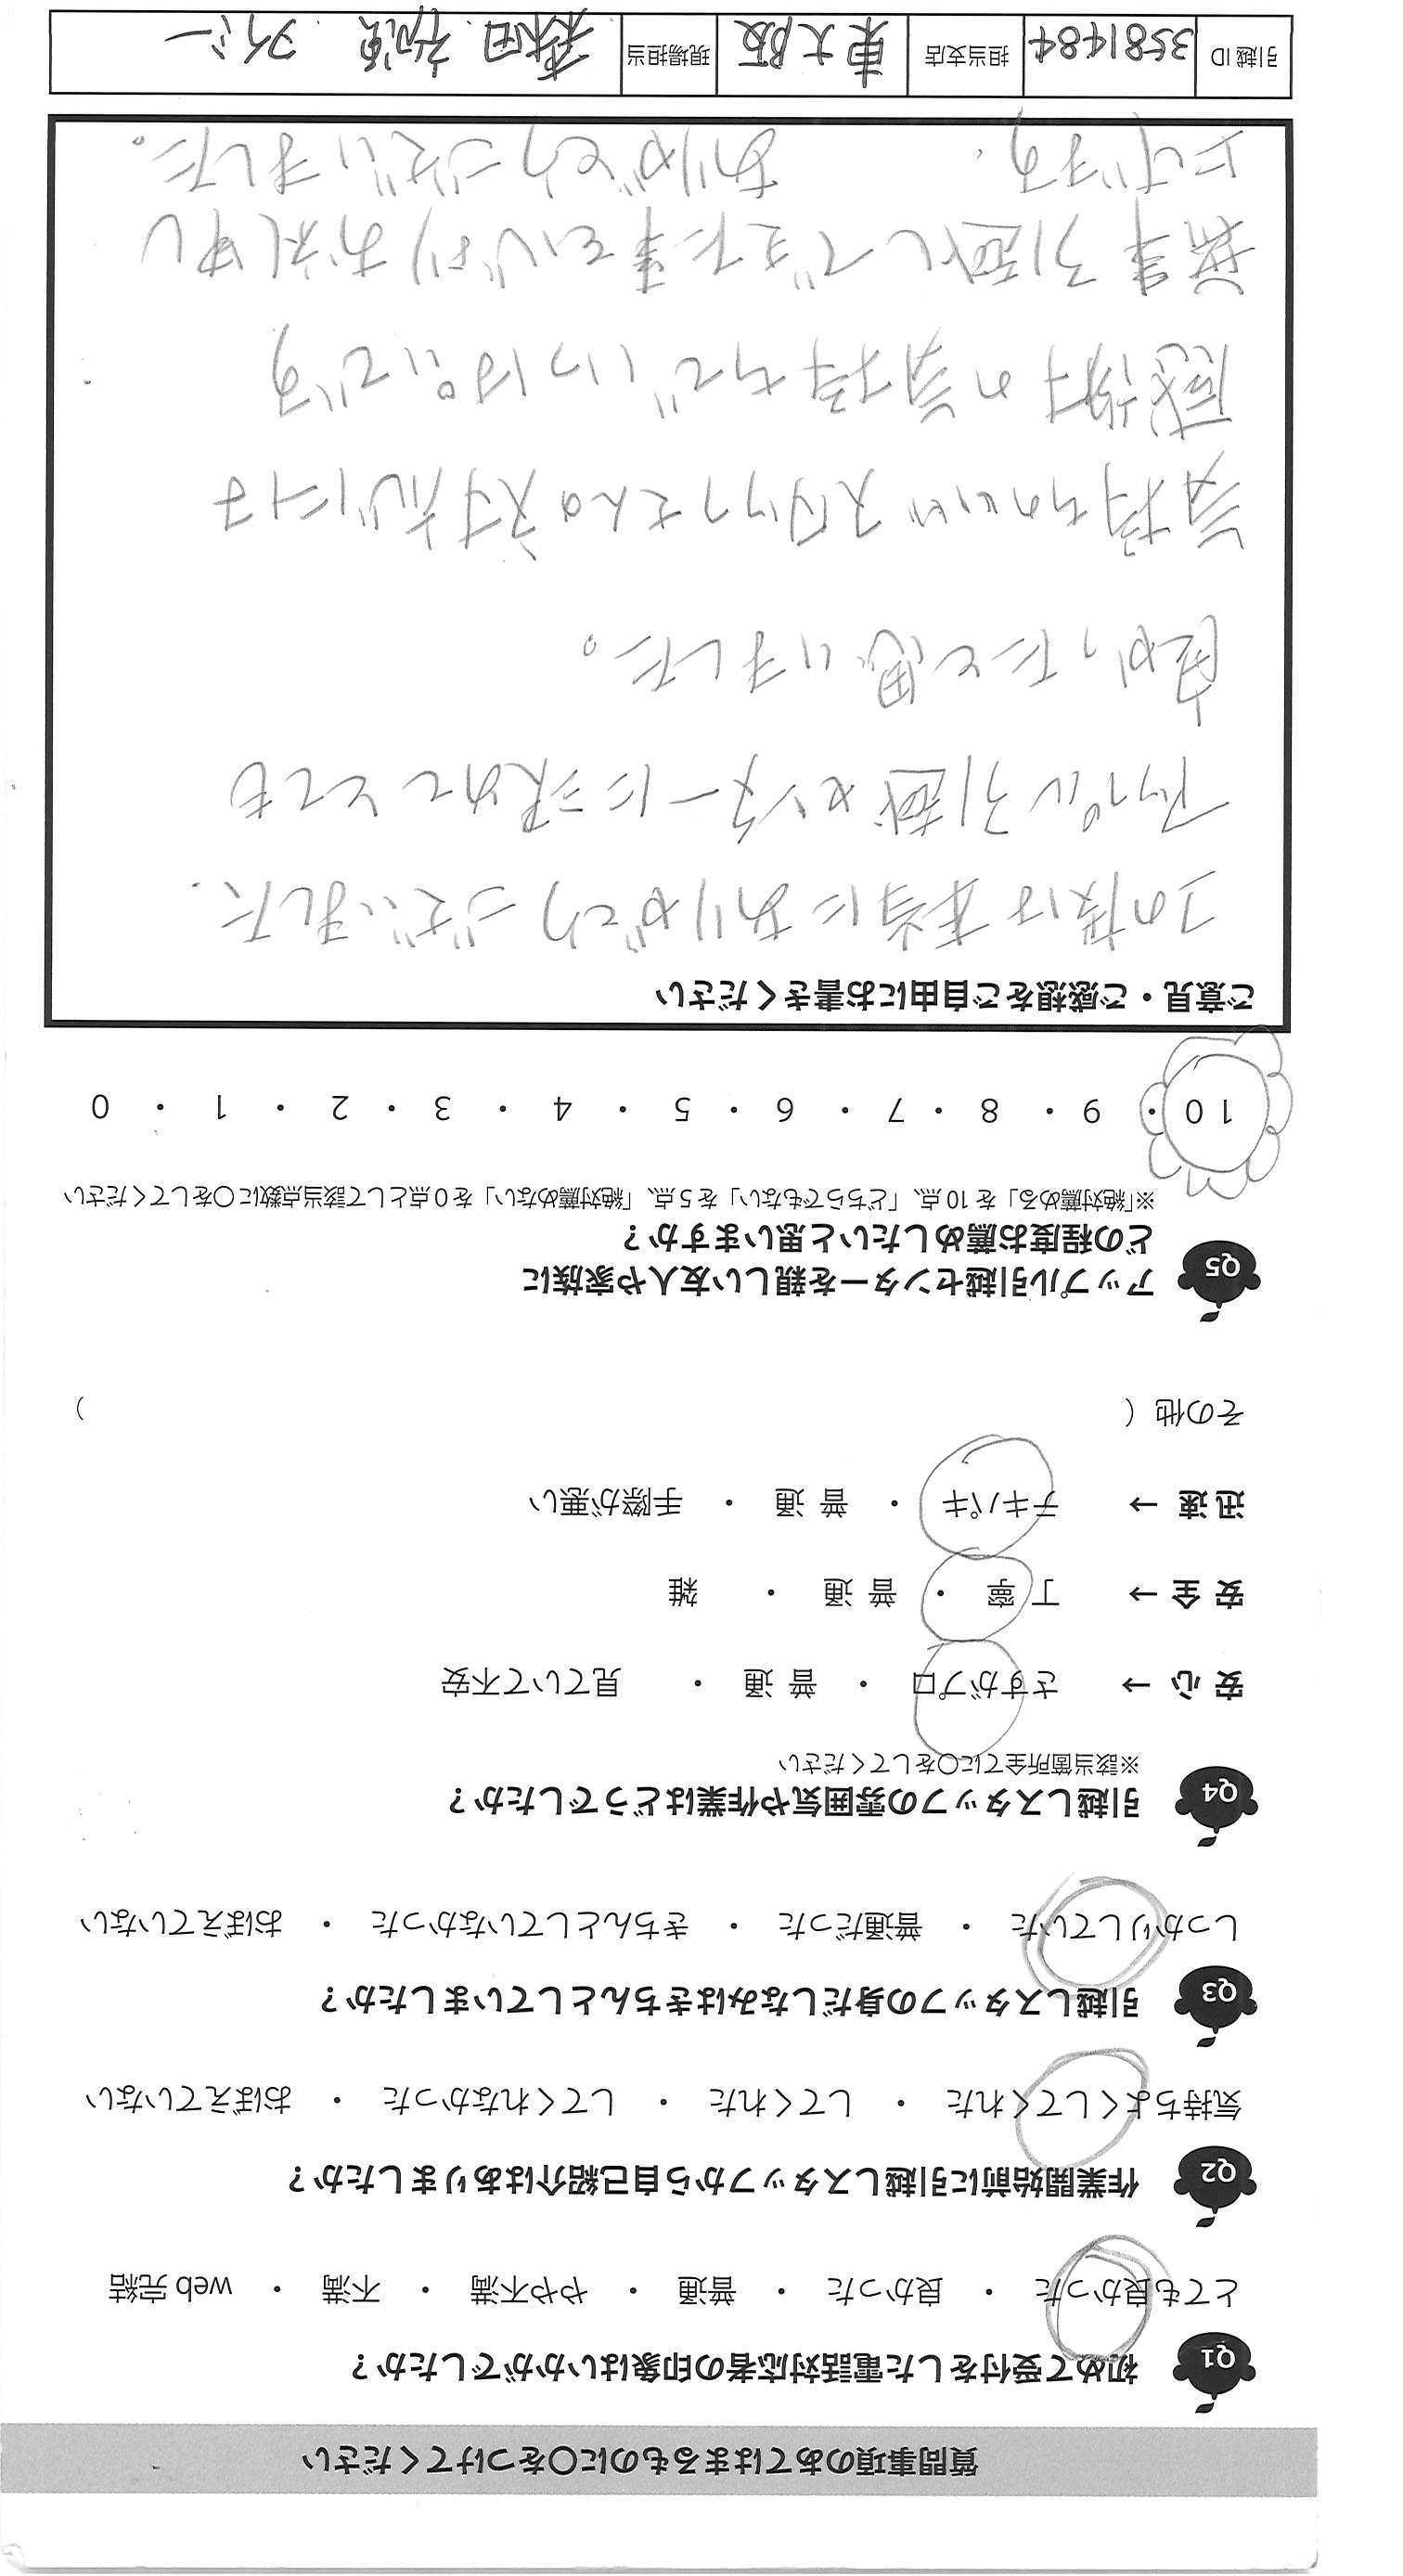 質問事項のあてはまるものに○をつけてください
Q1 初めて受付をした電話対応者の印象はいかがでしたか？
とても良かった ・ 良かった ・ 普通 ・ やや不満 ・ 不満 ・ web 完結
Q2 作業開始前に引越しスタッフから自己紹介はありましたか？
気持ちよくしてくれた ・ してくれた ・ してくれなかった ・ おぼえていない
Q3 引越しスタッフの身だしなみはきちんとしていましたか？
しっかりしていた ・ 普通だった ・ きちんとしていなかった ・ おぼえていない
Q4 引越しスタッフの雰囲気や作業はどうでしたか？
※該当箇所全てに○をしてください
安 心 → さすがプロ ・ 普 通 ・ 見ていて不安
安 全 → 丁 寧 ・ 普 通 ・ 雑
迅 速 → テキパキ ・ 普 通 ・ 手際が悪い
その他（ ）
Q5 アップル引越センターを親しい友人や家族に
どの程度お薦めしたいと思いますか？
※「絶対薦める」を 10 点、「どちらでもない」を 5 点、「絶対薦めない」を 0 点として該当点数に○をしてください
10 ・ 9 ・ 8 ・ 7 ・ 6 ・ 5 ・ 4 ・ 3 ・ 2 ・ 1 ・ 0
ご意見・ご感想をご自由にお書きください
この度は本当にありがとうございました.
アップル引越センターに決めてとても
良かったと思いました。
気持ちのいいスタッフさんの対応には
感謝の気持ちでいっぱいです
無事引越しできた事を心よりお礼申し
上げます. ありがとうございました。
引越 ID 3581484 担当支店 東大阪 現場担当 森田